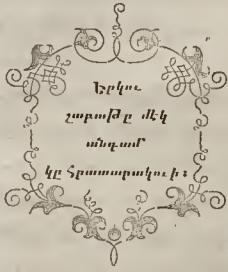 Երկու
շաբաթը մէկ
անգամ
կը հրատարակուի։